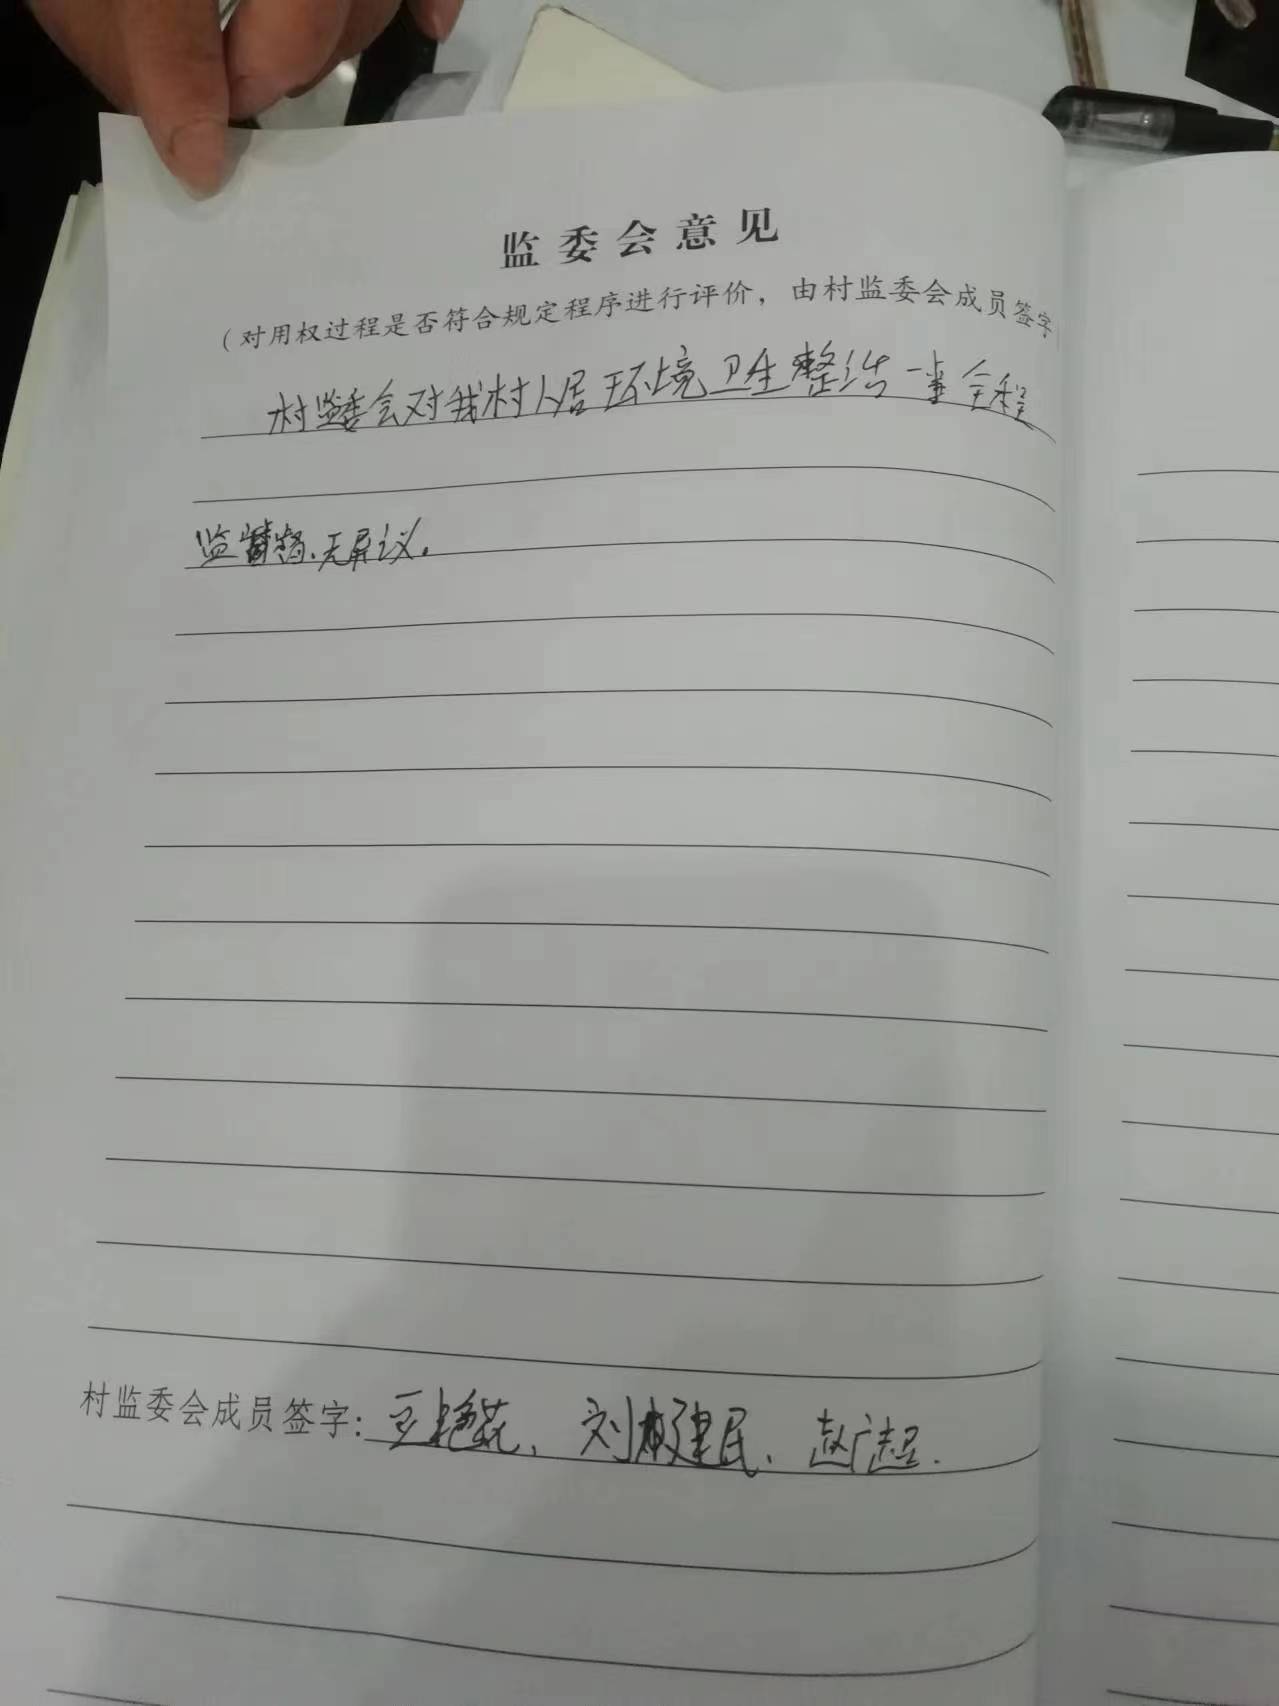 监委会意见
（对用权过程是否符合规定程序进行评价，由村监委会成员签字
村监委会对我村人居环境卫生整治一事全程
监督，无异议。
村监委会成员签字：豆艳花、刘建民、赵广超.